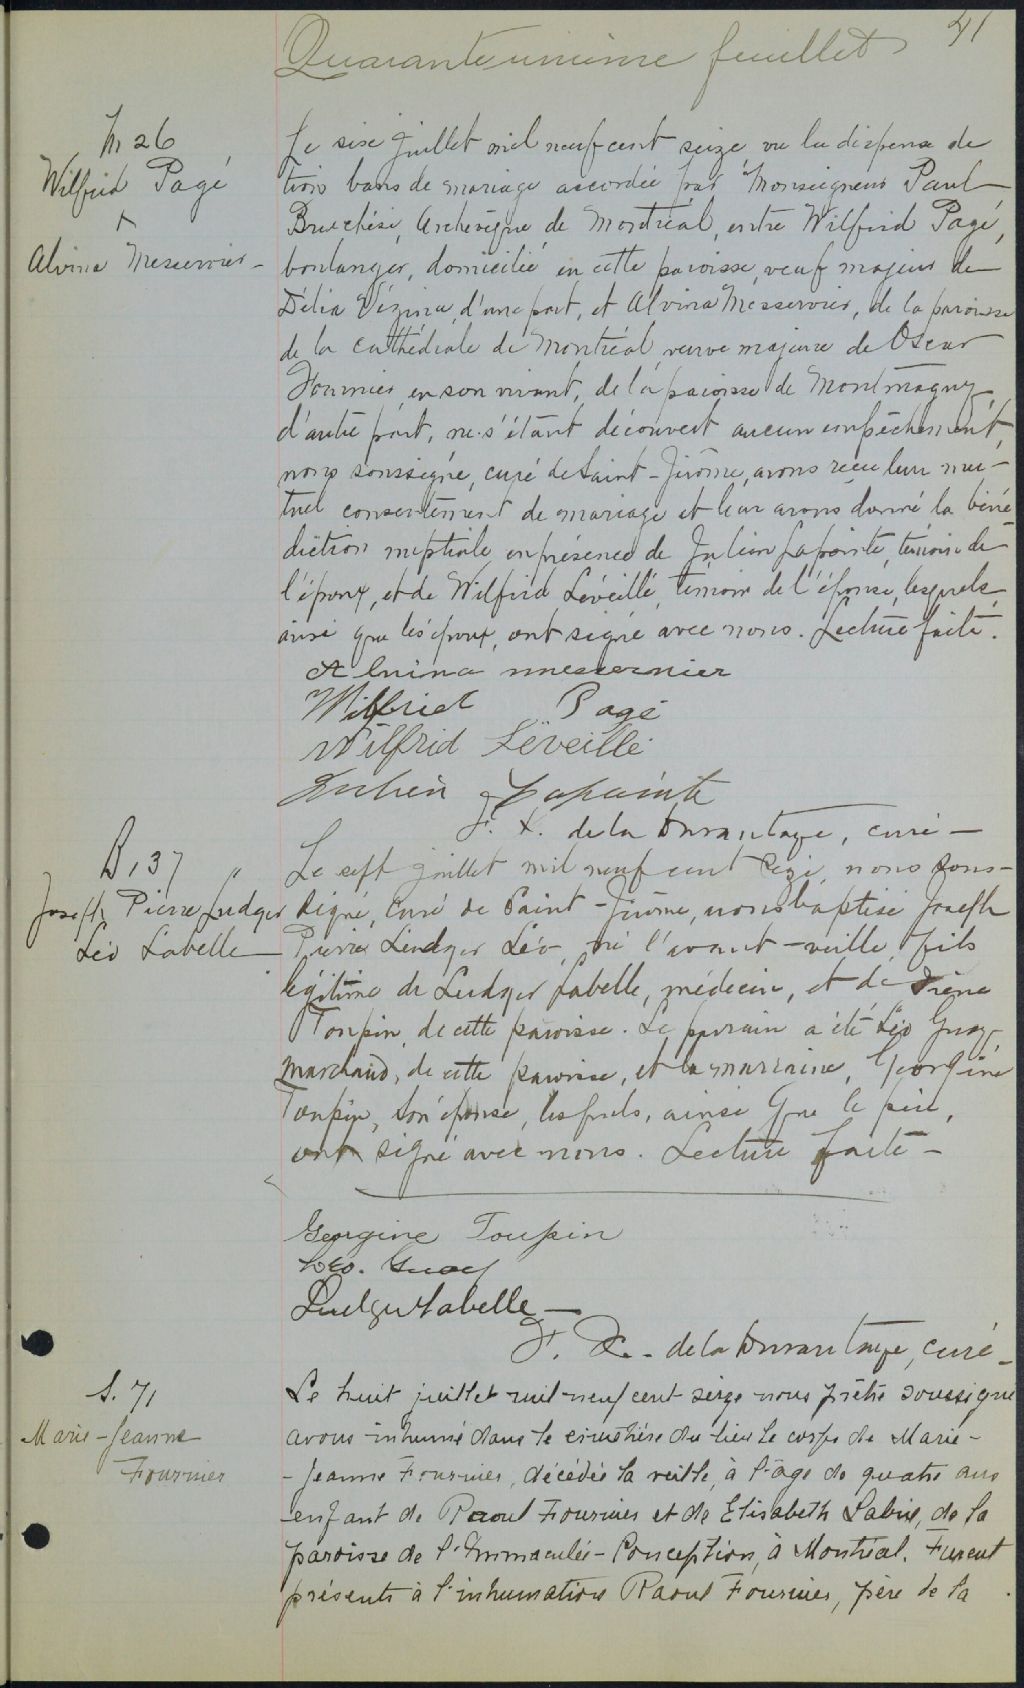 41
Quarante-unième feuillet
M 26
Wilfrid Pagé
&
Alvina Messervier -
Le six juillet mil neuf cent seize vu la dispense de
trois bans de mariage accordée par Monseigneur Paul
Bruchési, Archevêque de Montréal, entre Wilfrid Pagé,
boulanger, domicilié en cette paroisse, veuf majeur de
Délia Vézina, d'une part, et Alvina Messervier, de la paroisse
de la Cathédrale de Montréal, veuve majeure de Oscar
Fournier, en son vivant, de la paroisse de Montmagny
d'autre part, ne s'étant découvert aucun empêchement,
nous soussigné, curé de Saint-Jérôme, avons reçu leur mu-
tuel consentement de mariage et leur avons donné la béné
diction nuptiale en présence de Julien Lapointe, témoin de
l'époux, et de Wilfrid Léveillé, témoin de l'épouse, lesquels,
ainsi que les époux, ont signé avec nous. Lecture faite.
Alvina messervier
Wilfrid Pagé
Wilfrid Léveillé
Julien Lapointe
F. X. de la Durantaye, curé -
B, 37
Joseph Pierre Ludger
Léo Labelle
Le sept juillet mil neuf cent seize, nous sous-
signé, curé de Saint-Jérôme, avons baptisé Joseph
Pierre Ludger Léo, né l'avant-veille, fils
légitime de Ludger Labelle, médecin, et de Irène
Toupin, de cette paroisse. Le parrain a été Léo Guay,
marchand, de cette paroisse, et la marraine, Georgine
Toupin, son épouse, lesquels, ainsi que le père,
ont signé avec nous. Lecture faite -
Georgine Toupin
Léo. Guay
Ludger Labelle -
F. X. de la Durantaye, curé -
S. 71
Marie-Jeanne
Fournier
Le huit juillet mil-neuf cent-seize nous prêtre soussigné
avons inhumé dans le cimetière du lieu le corps de Marie-
-Jeanne Fournier, décédée la veille, à l'âge de quatre ans
enfant de Raoul Fournier et de Elisabeth Labrie, de la
paroisse de l'Immaculée-Conception, à Montréal. Furent
présents à l'inhumation Raoul Fournier, père de la